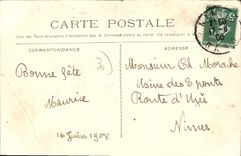 CARTE POSTALE
CORRESPONDANCE
ADRESSE
Bonne fête
Maurice
16 Juin 1908
Monsieur Ch Morache
Usine des 3 ponts
Route d'Uzès
Nimes